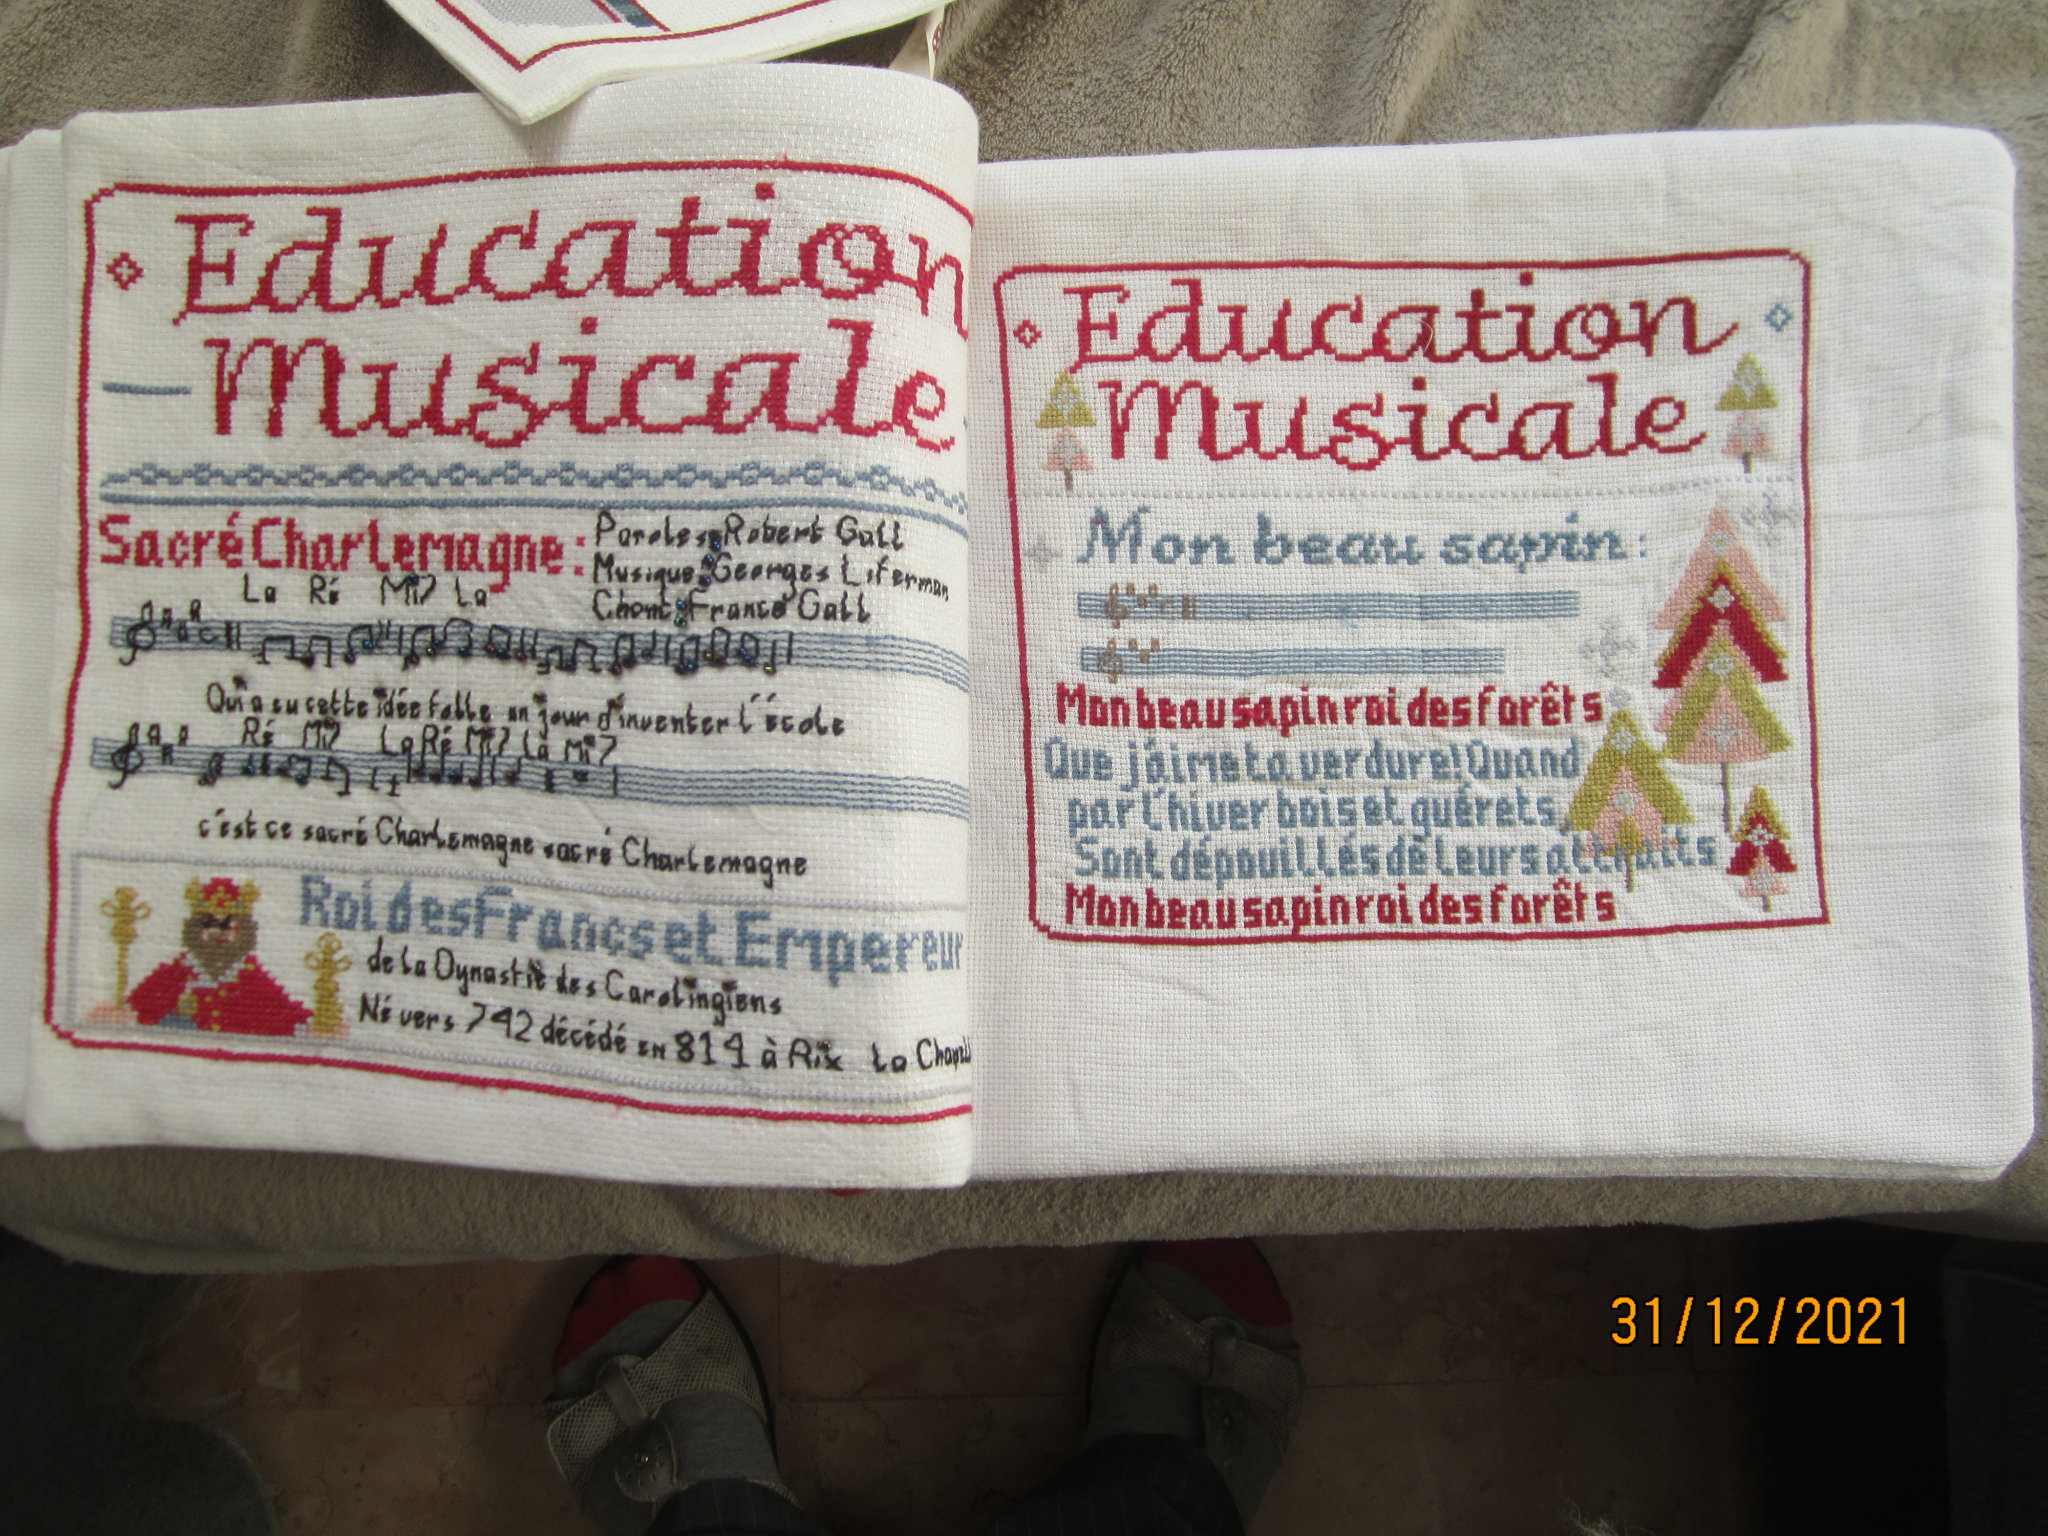 Education
Musicale
Sacré Charlemagne:
Paroles: Robert Gall
Musique: Georges Liferman
Chant: France Gall
La Ré Mi7 La
Qui a eu cette idée folle un jour d'inventer l'école
Ré Mi7 La Ré Mi7 La Mi7
c'est ce sacré Charlemagne sacré Charlemagne
Roi des Francs et Empereur
de la Dynastie des Carolingiens
Né vers 742 décédé en 814 à Aix La
Education
Musicale
Mon beau sapin:
Mon beau sapin roi des forêts
Que j'aime ta verdure! Quand
par l'hiver bois et guérets,
Sont dépouillés de leurs
Mon beau sapin roi des forêts
31/12/2021